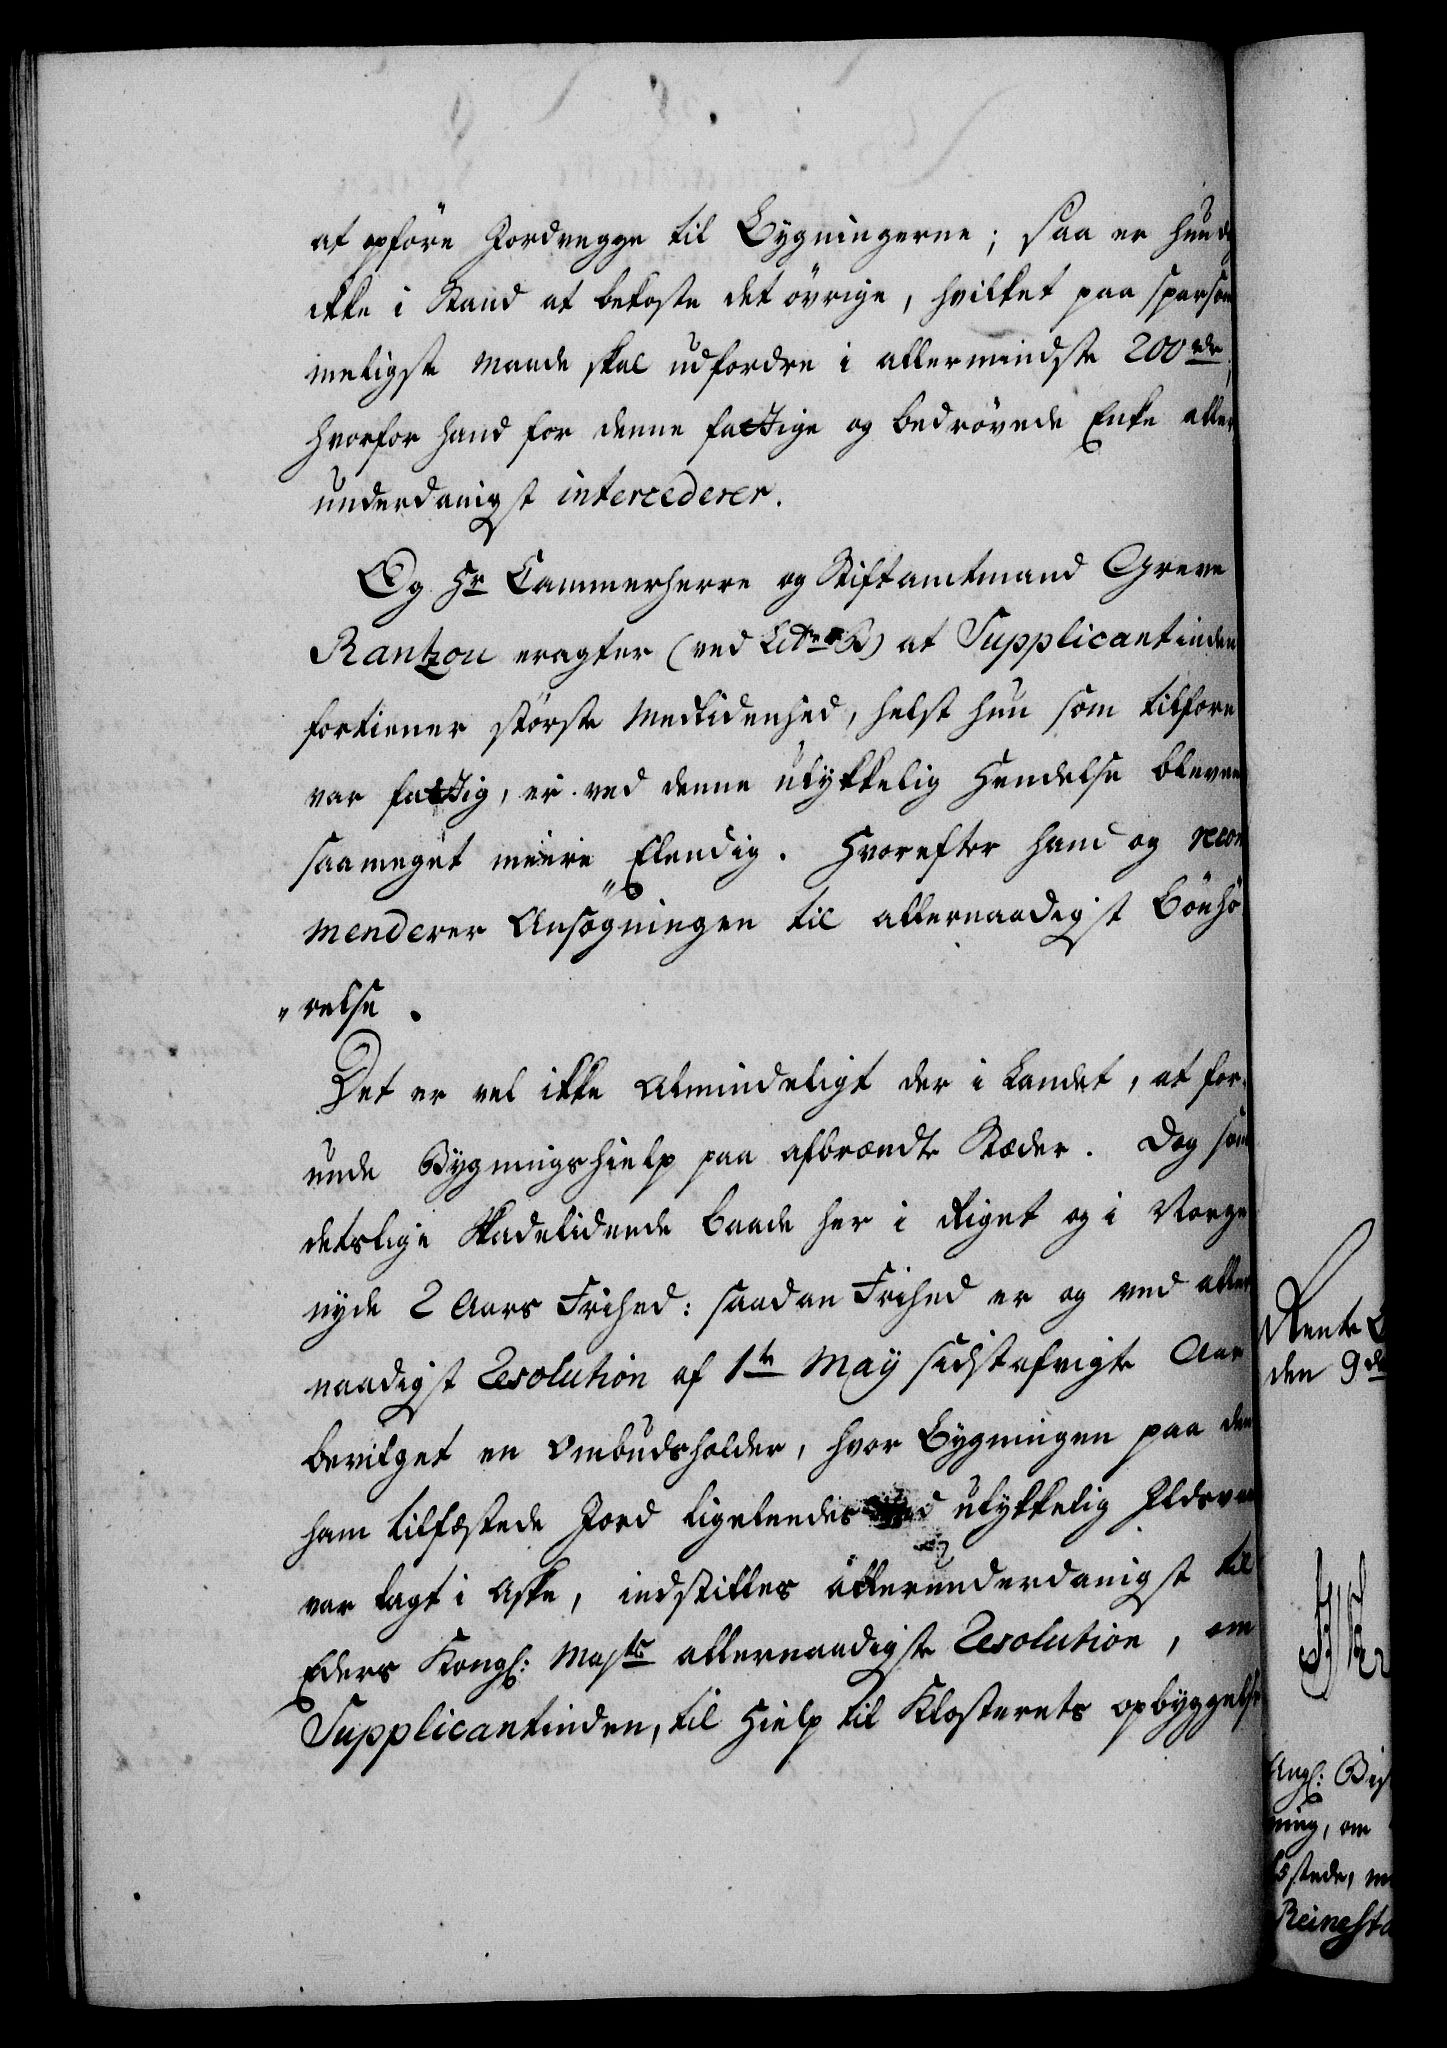 at opföre Jordvegge til Bygningerne; saa er hun dog
ikke i Stand at bekoste det övrige, hvilket paa sparsom
meligste Maade skal udfordre i allermindste 200 rdr,
hvorfor hand for denne fattige og bedrövede Enke aller
underdanigst intercederer.
Og Hr Cammerherre og Stiftamtmand Greve
Rantzou eragter (ved Litr B) at Supplicantinden
fortiener störste Medlidenhed, helst hun som tilforn
var fattig, er ved denne ulykkelig Hendelse bleven
saameget meere Elendig. Hvorefter hand og recom
menderer Ansögningen til allernaadigst Bönhö
"relse.
Det er vel ikke Almindeligt der i Landet, at for-
unde Bygningshielp paa afbrændte Stæder. Dog som
detslige Skadelidende baade her i Riget og i Norge
nyde 2 Aars Frihed: saadan Frihed er og ved aller
naadigst Resolution af 1te May sidstafvigte Aar
bevilget en Ombudsholder, hvor Bygningen paa den
ham tilfæstede Jord ligeledes ved ulykkelig Ildsvaa
var lagt i Aske, indstilles allerunderdanigst til
Eders Kongl: Majts allernaadigste Resolution, om
Supplicantinden, til Hielp til Klosterets opbyggelse
Rente
den 9de
Angl:
ning, om
stede,
Reinesta